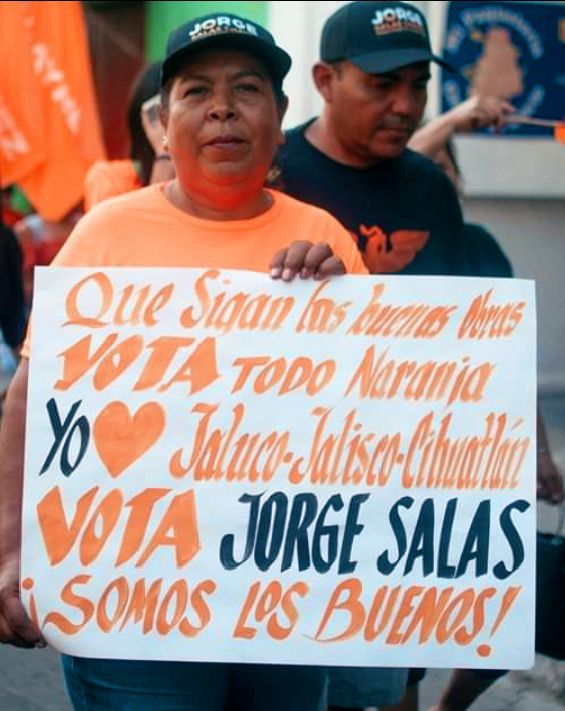 JORGE
JORGE
Que Sigan las buenas Obras
VOTA TODO Naranja
Yo Jaluco-Jalisco-Cihuatlán
VOTA JORGE SALAS
¡SOMOS LOS BUENOS!